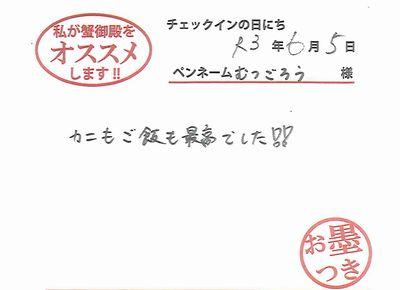 私が蟹御殿を
オススメ
します!!
チェックインの日にち
R3 年 6 月 5 日
ペンネーム むつごろう 様
カニもご飯も最高でした!!
お墨
つき